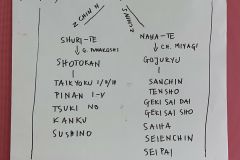 SHURI-TE
↓ G. FUNAKOSHI
SHOTOKAN
TAIKYOKU I/II/III
PINAN I-V
TSUKI NO
KANKU
SUSHINO
NAHA-TE
↓ CH. MIYAGI
GOJURYU
SANCHIN
TENSHO
GEKI SAI DAI
GEKI SAI SHO
SAIHA
SEIENCHIN
SEIPAI